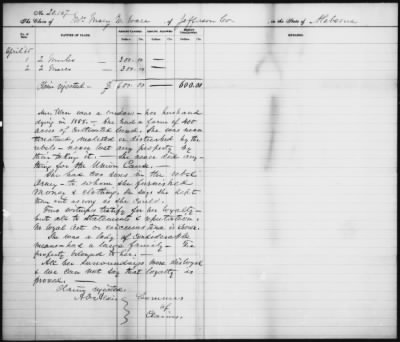 No 20,107.
The Claim of Mrs Mary W. Ware of Jefferson Co. in the State of Alabama
No. of Item. NATURE OF CLAIM. AMOUNT CLAIMED. AMOUNT ALLOWED. AMOUNT DISALLOWED. REMARKS.
Dollars. Cts. Dollars. Cts. Dollars. Cts.
1 2 Mules 300.00 —
2 2 Mares 300.00 —
Claim rejected — $ 600.00 — 600.00
Mrs. Ware was a widow — her husband
dying in 1858. — She had a farm of 400
acres of cultivated land. She was never
threatened, molested or disturbed by the
rebels — never lost any property by
their taking it. — She never did any-
thing for the Union Cause. —
She had two sons in the rebel
Army — to whom she furnished
money & clothing, She says she kept
them out as long as she could.
Four witnesses testify for her loyalty —
but all to statements & reputation, —
no loyal act or circumstance is shown.
She was a lady of considerable
means & had a large family — The
property belonged to her. —
All her surroundings were disloyal
& we can not say that loyalty is
proved. —
Claim rejected.
A.O. Aldis
Commrs
of
Claims.